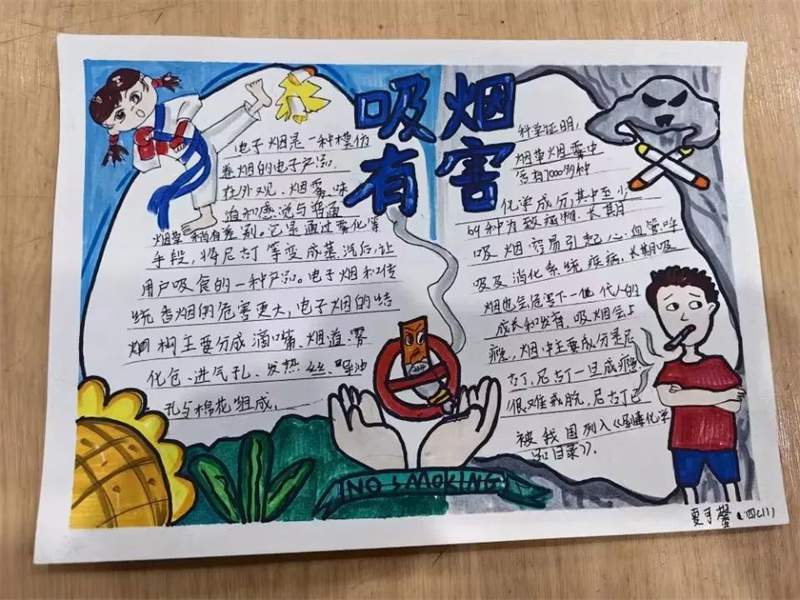 吸烟
有害
电子烟是一种模仿
卷烟的电子产品,
在外观、烟雾、味
道和感觉与普通
烟草稍有差别。它是通过雾化等
手段,将尼古丁等变成蒸汽后,让
用户吸食的一种产品。电子烟和传
统香烟的危害更大,电子烟的结
构主要分成滴嘴、烟道、雾
化仓、进气孔、发热丝、导油
孔与棉花组成。
科学证明,
烟草烟雾中
含有7000多种
化学成分,其中至少
69种为致癌物。长期
吸烟容易引起心血管、呼
吸及消化系统疾病。长期吸
烟也会危害下一代人的
成长和发育,吸烟会上
瘾,烟中主要成分是尼
古丁,尼古丁一旦成瘾
很难戒脱,尼古丁已
被我国列入《剧毒化学
品目录》。
NO SMOKING
夏于馨 四(1)